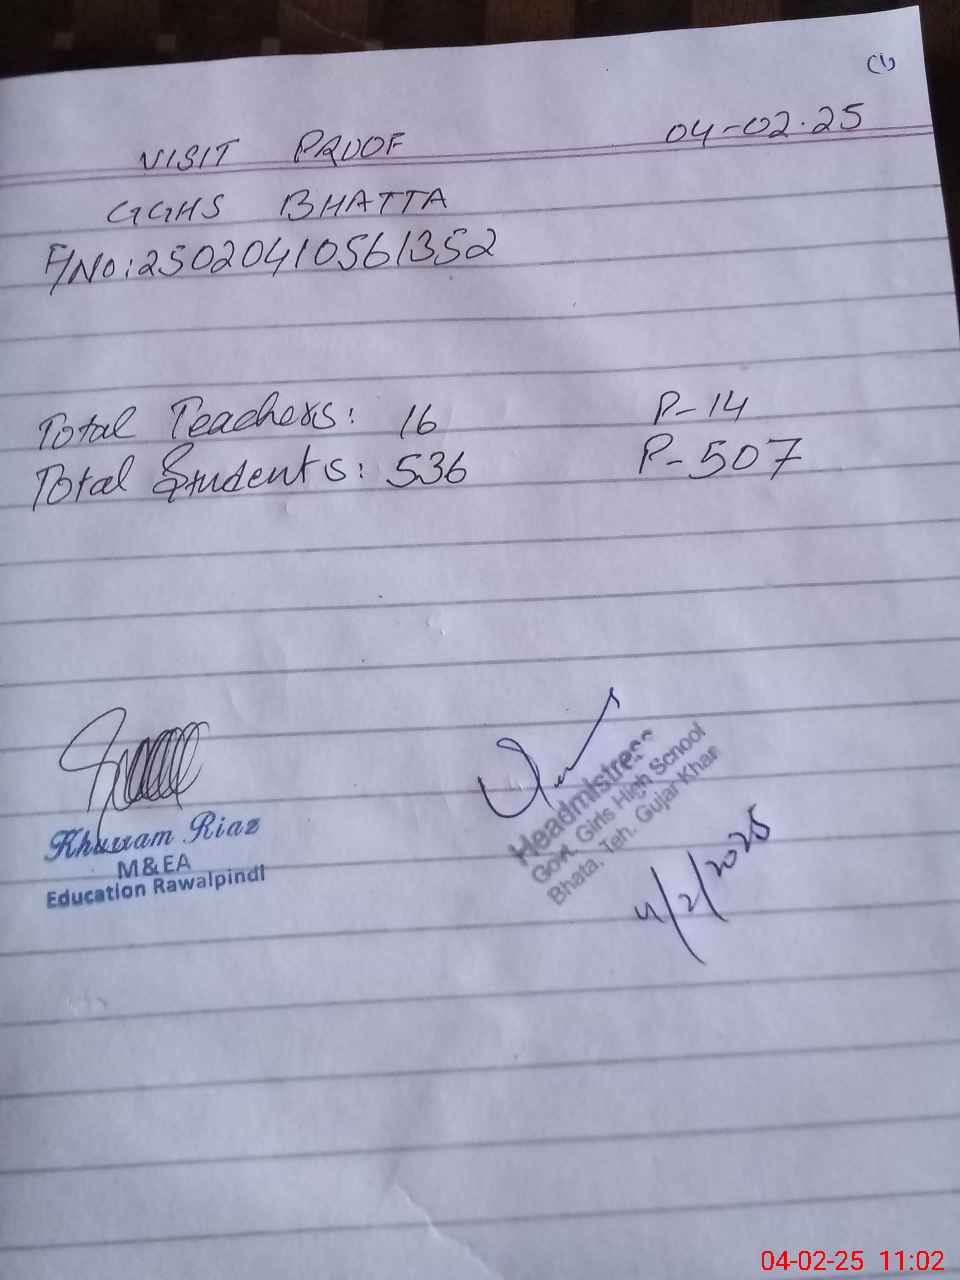 (1)
VISIT PROOF 04-02-25
GGHS BHATTA
F/No: 25020410561352
Total Teachers: 16 P-14
Total Students: 536 P-507
Khurram Riaz
M&EA
Education Rawalpindi
Headmistress
Govt. Girls High School
Bhata, Teh. Gujar Khan
4/2/2025
04-02-25 11:02